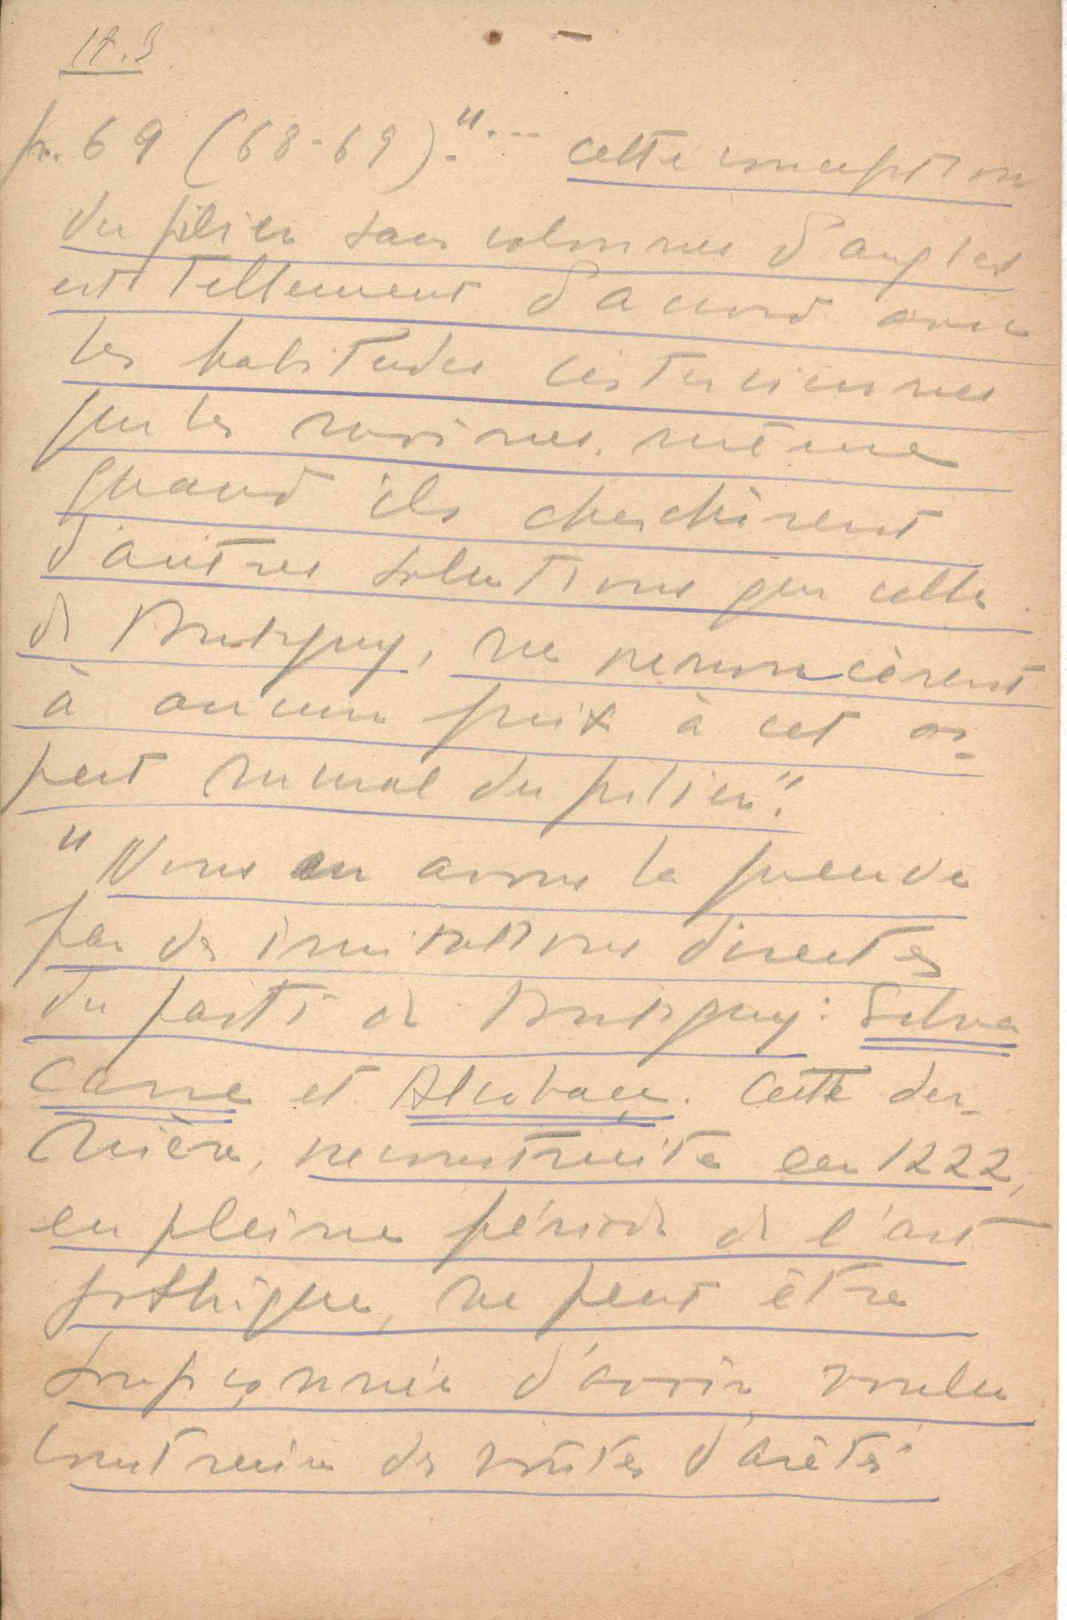 p. 69 (68-69). "... cette conception
du pilier sans colonnes d'angles
est tellement d'accord avec
les habitudes cisterciennes
que les moines, même
quand ils cherchèrent
d'autres solutions que celle
de Pontigny, ne renoncèrent
à aucun prix à cet as-
pect mural du pilier".
"Nous en avons la preuve
par des imitations directes
du parti de Pontigny: Silva
canne et Alcobaça. Cette der-
nière, reconstruite en 1222,
en pleine période de l'art
gothique, ne peut être
soupçonnée d'avoir voulu
construire des voûtes d'arêtes